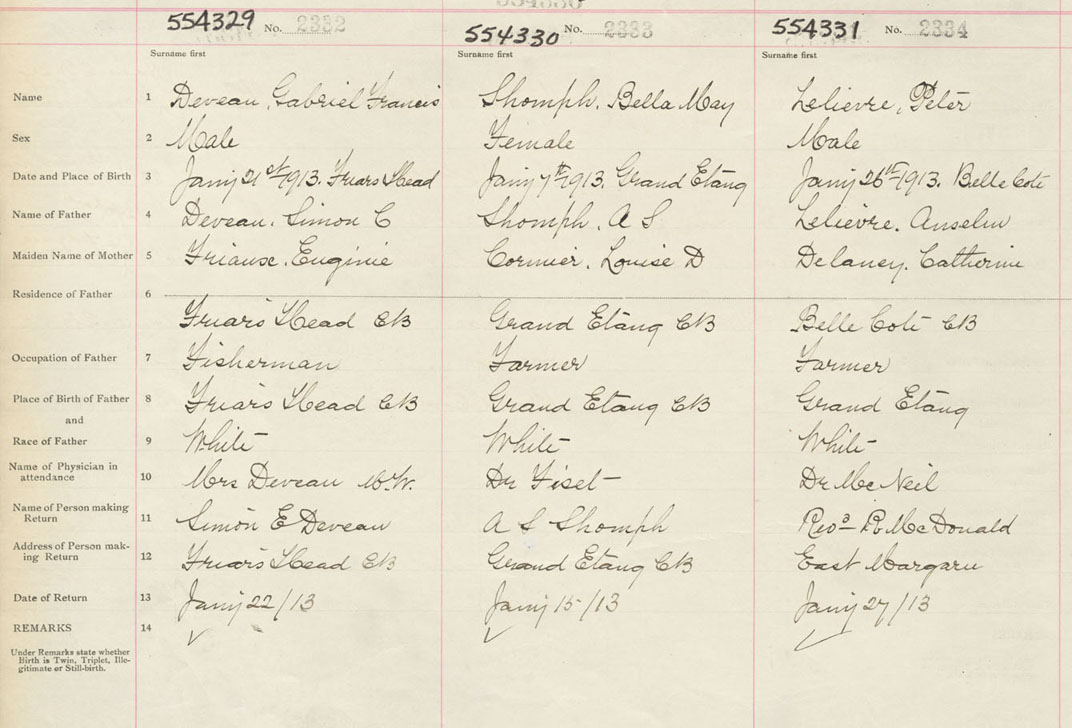 554329 No. 2332 554330 No. 2333 554331 No. 2334
Surname first Surname first Surname first
Name 1 Deveau, Gabriel Francis Shomph, Bella May Lelievre, Peter
Sex 2 Male Female Male
Date and Place of Birth 3 Jany 21st/1913. Friars Head Jany 7th/1913. Grand Etang Jany 26th/1913. Belle Cote
Name of Father 4 Deveau. Simon C Shomph, A S Lelievre. Anselm
Maiden Name of Mother 5 Eugenie Cormier. Louise D Delaney. Catherine
Residence of Father 6
Friars Head CB Grand Etang CB Belle Cote CB
Occupation of Father 7 Fisherman Farmer Farmer
Place of Birth of Father 8 Friars Head CB Grand Etang CB Grand Etang
and
Race of Father 9 White White White
Name of Physician in
attendance 10 Mrs Deveau M.W. Dr Fiset Dr McNeil
Name of Person making
Return 11 Simon E Deveau A S Shomph Revd R. McDonald
Address of Person mak-
ing Return 12 Friars Head CB Grand Etang CB East Margaree
Date of Return 13 Jany 22/13 Jany 15/13 Jany 27/13
REMARKS 14
Under Remarks state whether
Birth is Twin, Triplet, Ille-
gitimate or Still-birth.